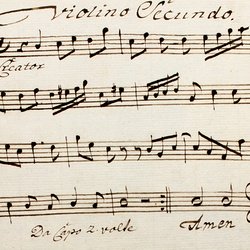 Violino Secundo.
Da Capo 2 volte Amen